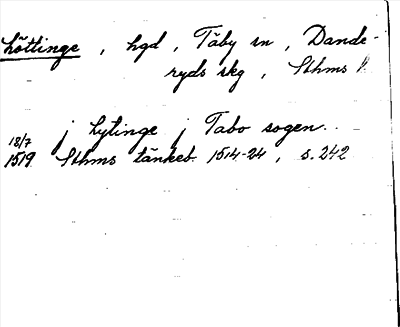 Löttinge, hgd, Täby sn, Dande-
ryds skg, Sthms l.
j Lytinge j Tabo sogen.
18/7
1519 Sthms tänkeb. 1514-24, s. 242